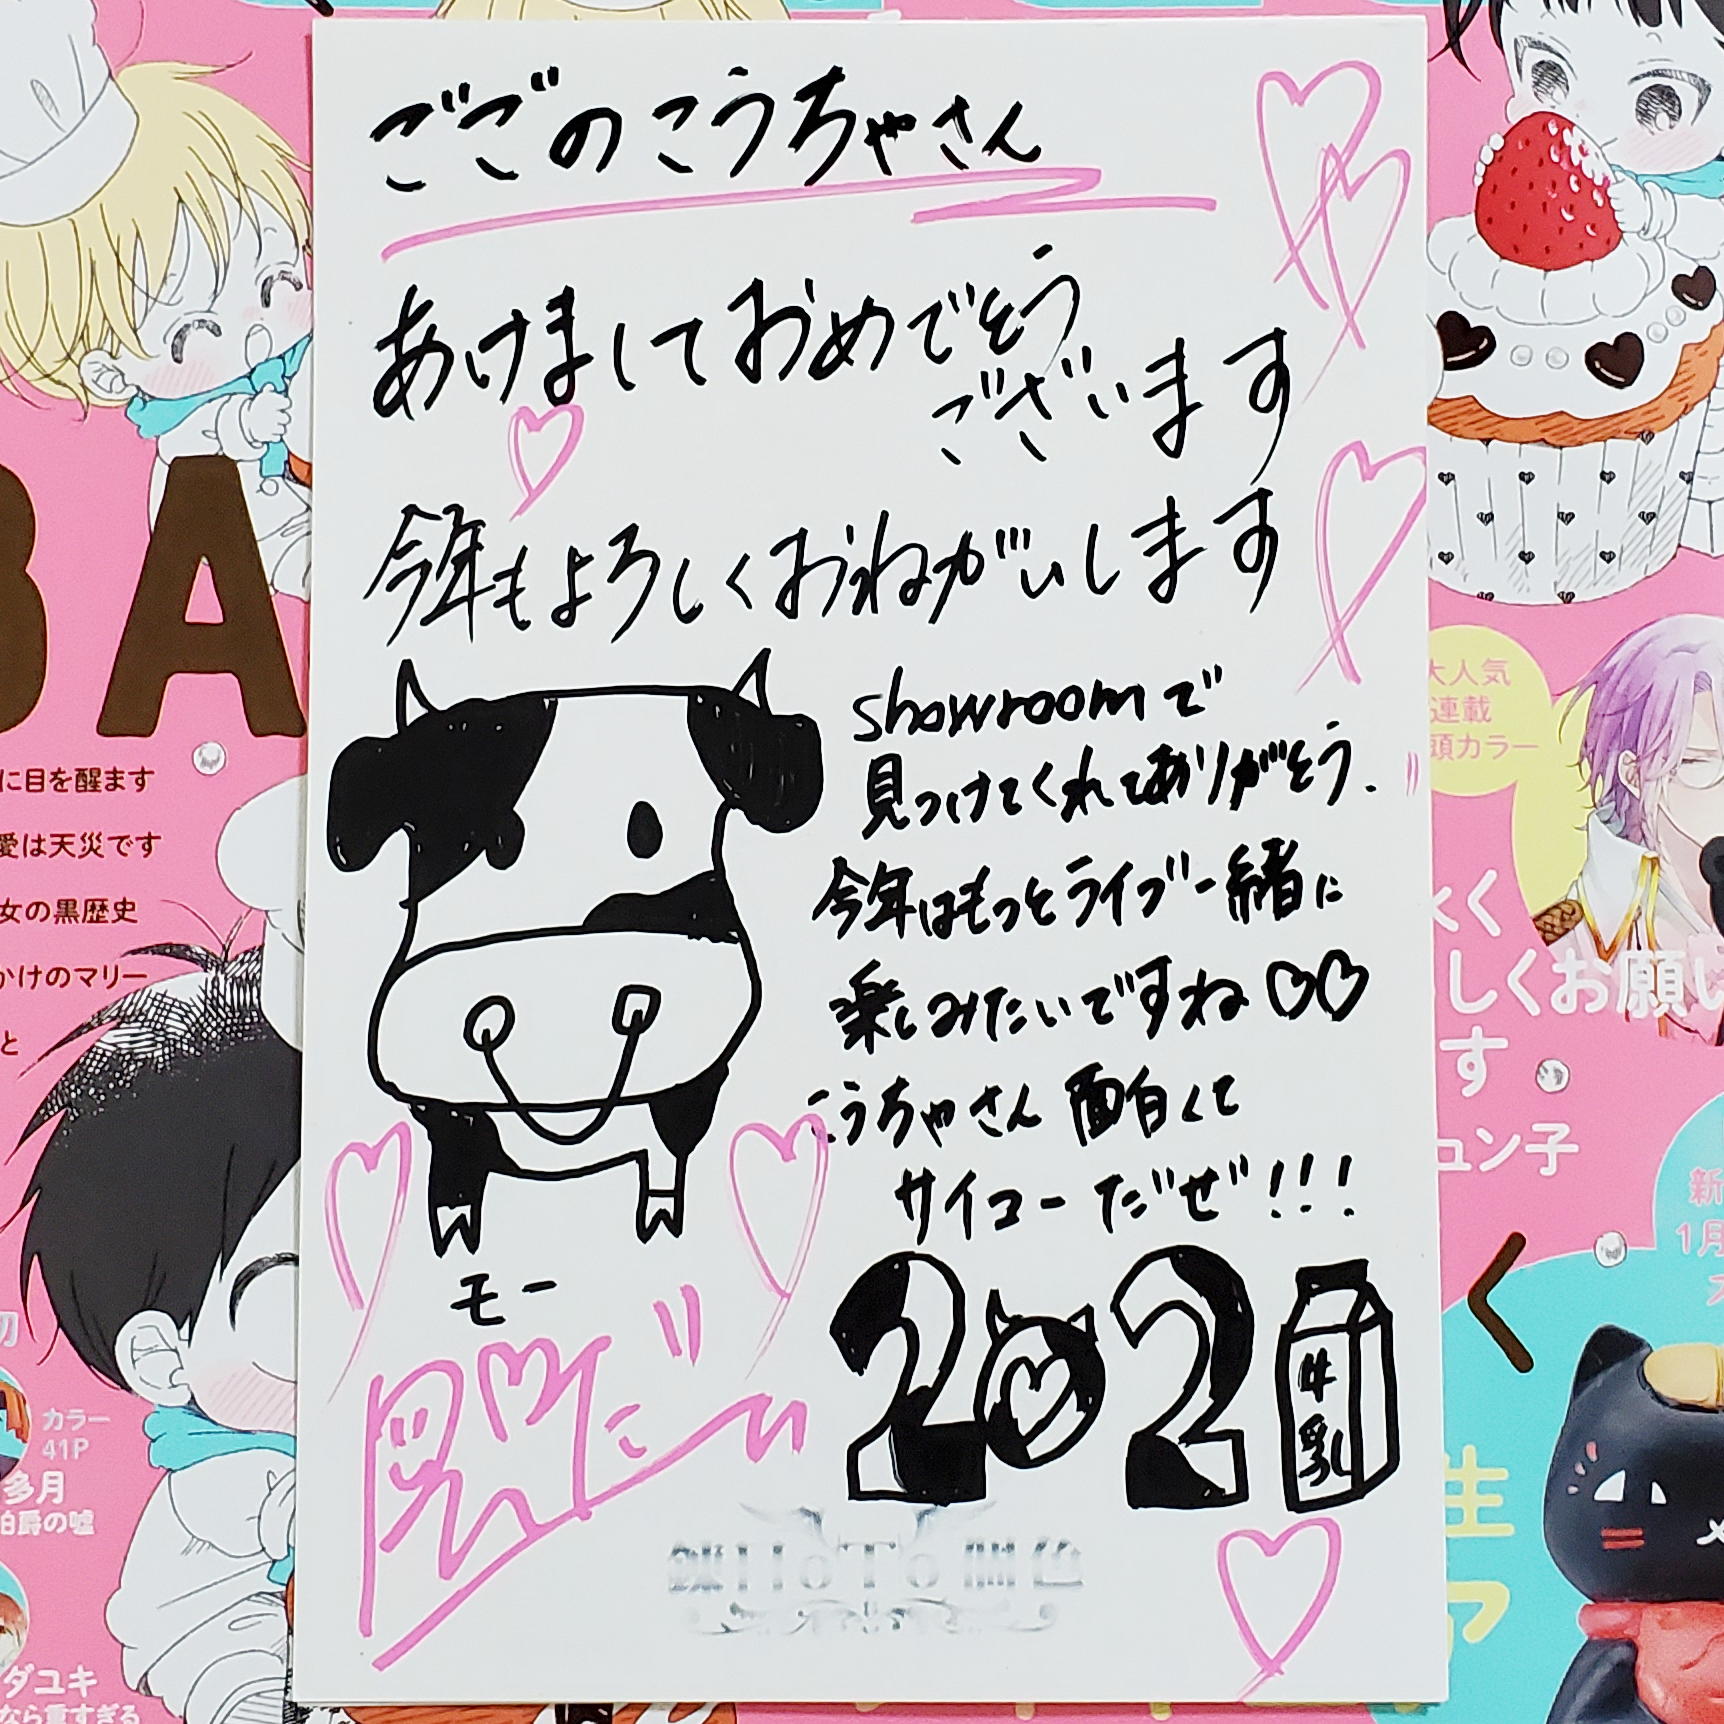 ごごのこうちゃさん
あけましておめでとう
ございます
今年もよろしくおねがいします
showroomで
見つけてくれてありがとう.
今年はもっとライブ一緒に
楽しみたいですね♡♡
こうちゃさん 面白くて
サイコーだぜ!!!
モー
2021
牛乳
BA
に目を醒ます
愛は天災です
女の黒歴史
かけのマリー
と
カラー
41P
多月
伯爵の嘘
ダユキ
なら重すぎる
大人気
連載
頭カラー
くく
しくお願い
す
ュン子
新
1月
く
生